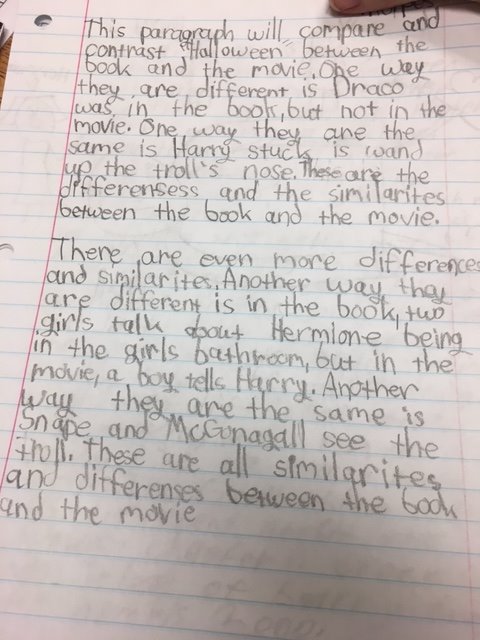 This paragraph will compare and
contrast "Halloween" between the
book and the movie. One way
they are different is Draco
was in the book, but not in the
movie. One way they are the
same is Harry stuck is wand
up the troll's nose. These are the
differensess and the similarites
between the book and the movie.
There are even more differences
and similarites. Another way they
are different is in the book, two
girls talk about Hermione being
in the girls bathroom, but in the
movie, a boy tells Harry. Another
way they are the same is
Snape and McGonagall see the
troll. These are all similarites
and differenses between the book
and the movie